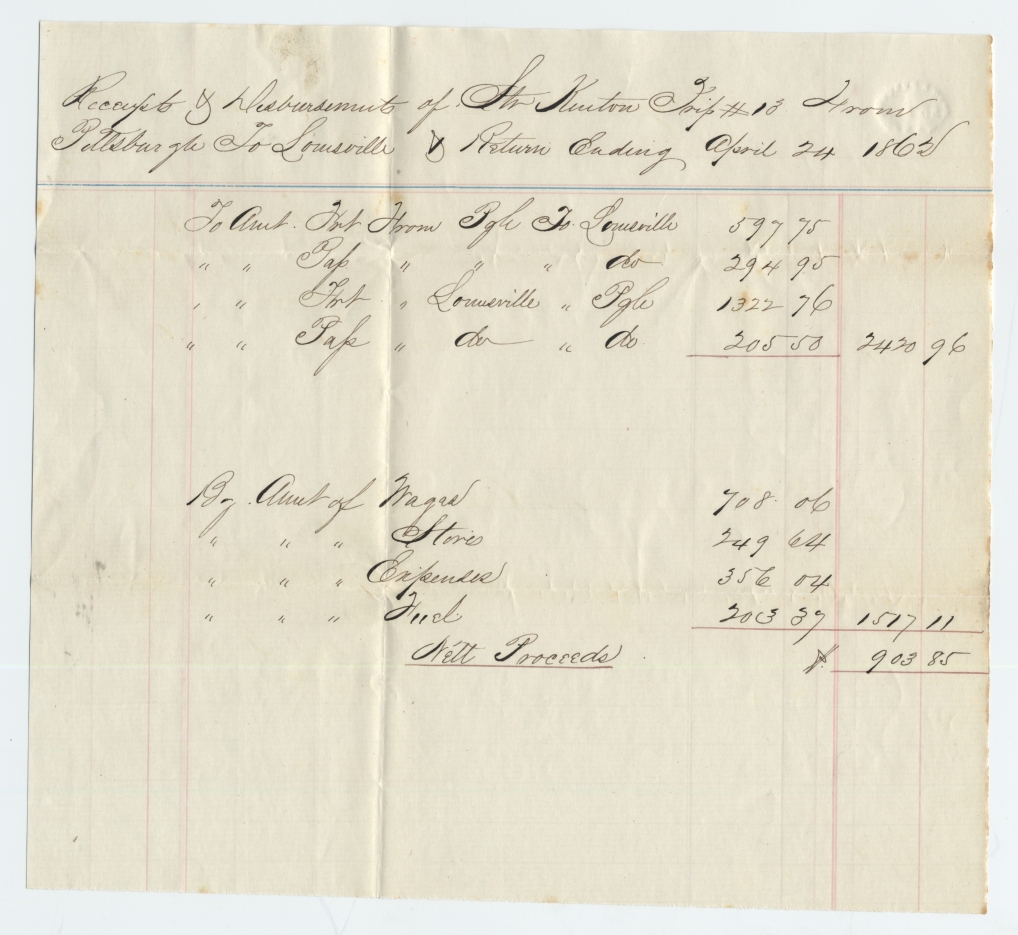 Receipts & Disbursements of Str Kenton Trip # 13 From
Pittsburgh To Louisville & Return Ending April 24 1862
To Amt. Frt From Pgh To Louisville 597 75
" " Pass " " " do 294 95
" " Frt " Louisville " Pgh 1322 76
" " Pass " do " do 205 50 2420 96
By Amt of Wages 708 06
" " " Stores 249 64
" " " Expenses 356 04
" " " Fuel 203 37 1517 11
Nett Proceeds $. 903 85